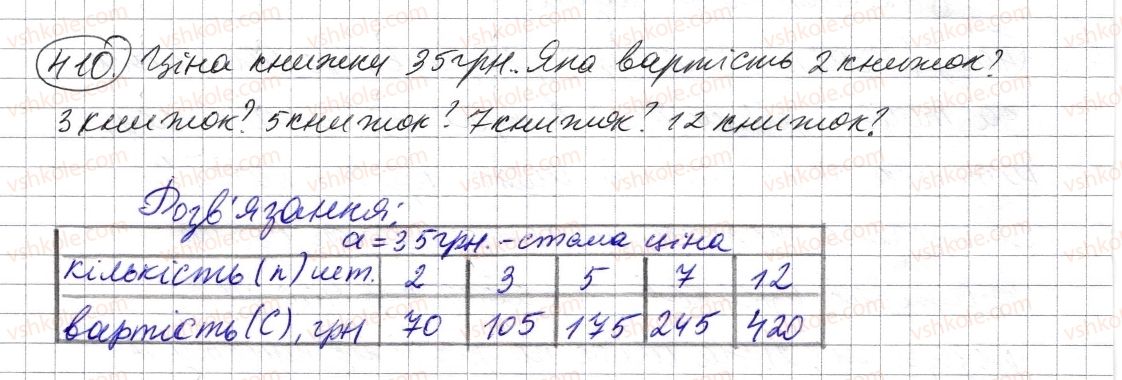 410. Ціна книжки 35 грн. Яка вартість 2 книжок?
3 книжок? 5 книжок? 7 книжок? 12 книжок?
Розв'язання:
a = 35 грн. - стала ціна
кількість (n) шт. 2 3 5 7 12
вартість (C), грн 70 105 175 245 420